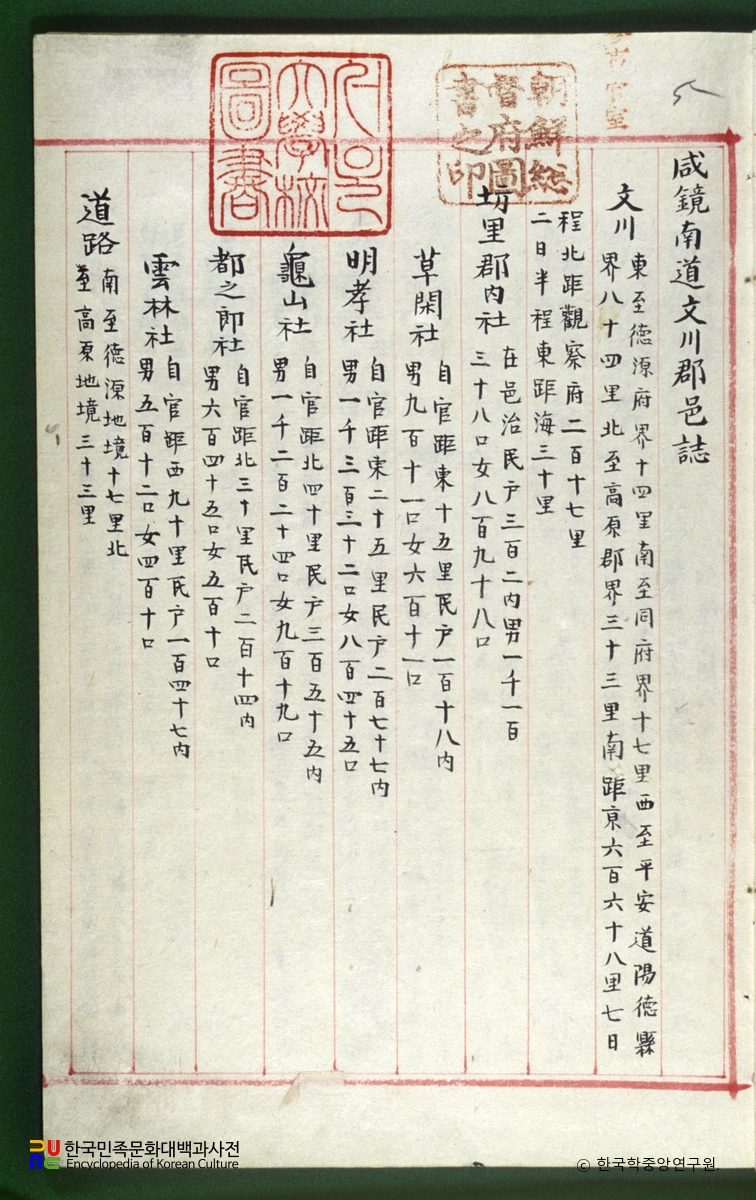 咸鏡南道文川郡邑誌
文川
東至德源府界十四里南至同府界十七里西至平安道陽德縣
界八十四里北至高原郡界三十三里南距京六百六十八里七日
程北距觀察府二百十七里
二日半程東距海三十里
坊里郡內社
在邑治民户三百二內男一千一百
三十八口女八百九十八口
草閑社
自官距東十五里民户一百十八內
男九百十一口女六百十一口
明孝社
自官距東二十五里民户二百七十七內
男一千三百三十二口女八百四十五口
龜山社
自官距北四十里民户三百五十五內
男一千二百二十四口女九百十九口
都之郎社
自官距北三十里民户二百十四內
男六百四十五口女五百十口
雲林社
自官距西九十里民户一百四十七內
男五百十二口女四百十口
道路
南至德源地境十七里北
至高原地境三十三里
朝鮮總
督府圖
書之印
大學校
圖書
한국민족문화대백과사전
Encyclopedia of Korean Culture
© 한국학중앙연구원